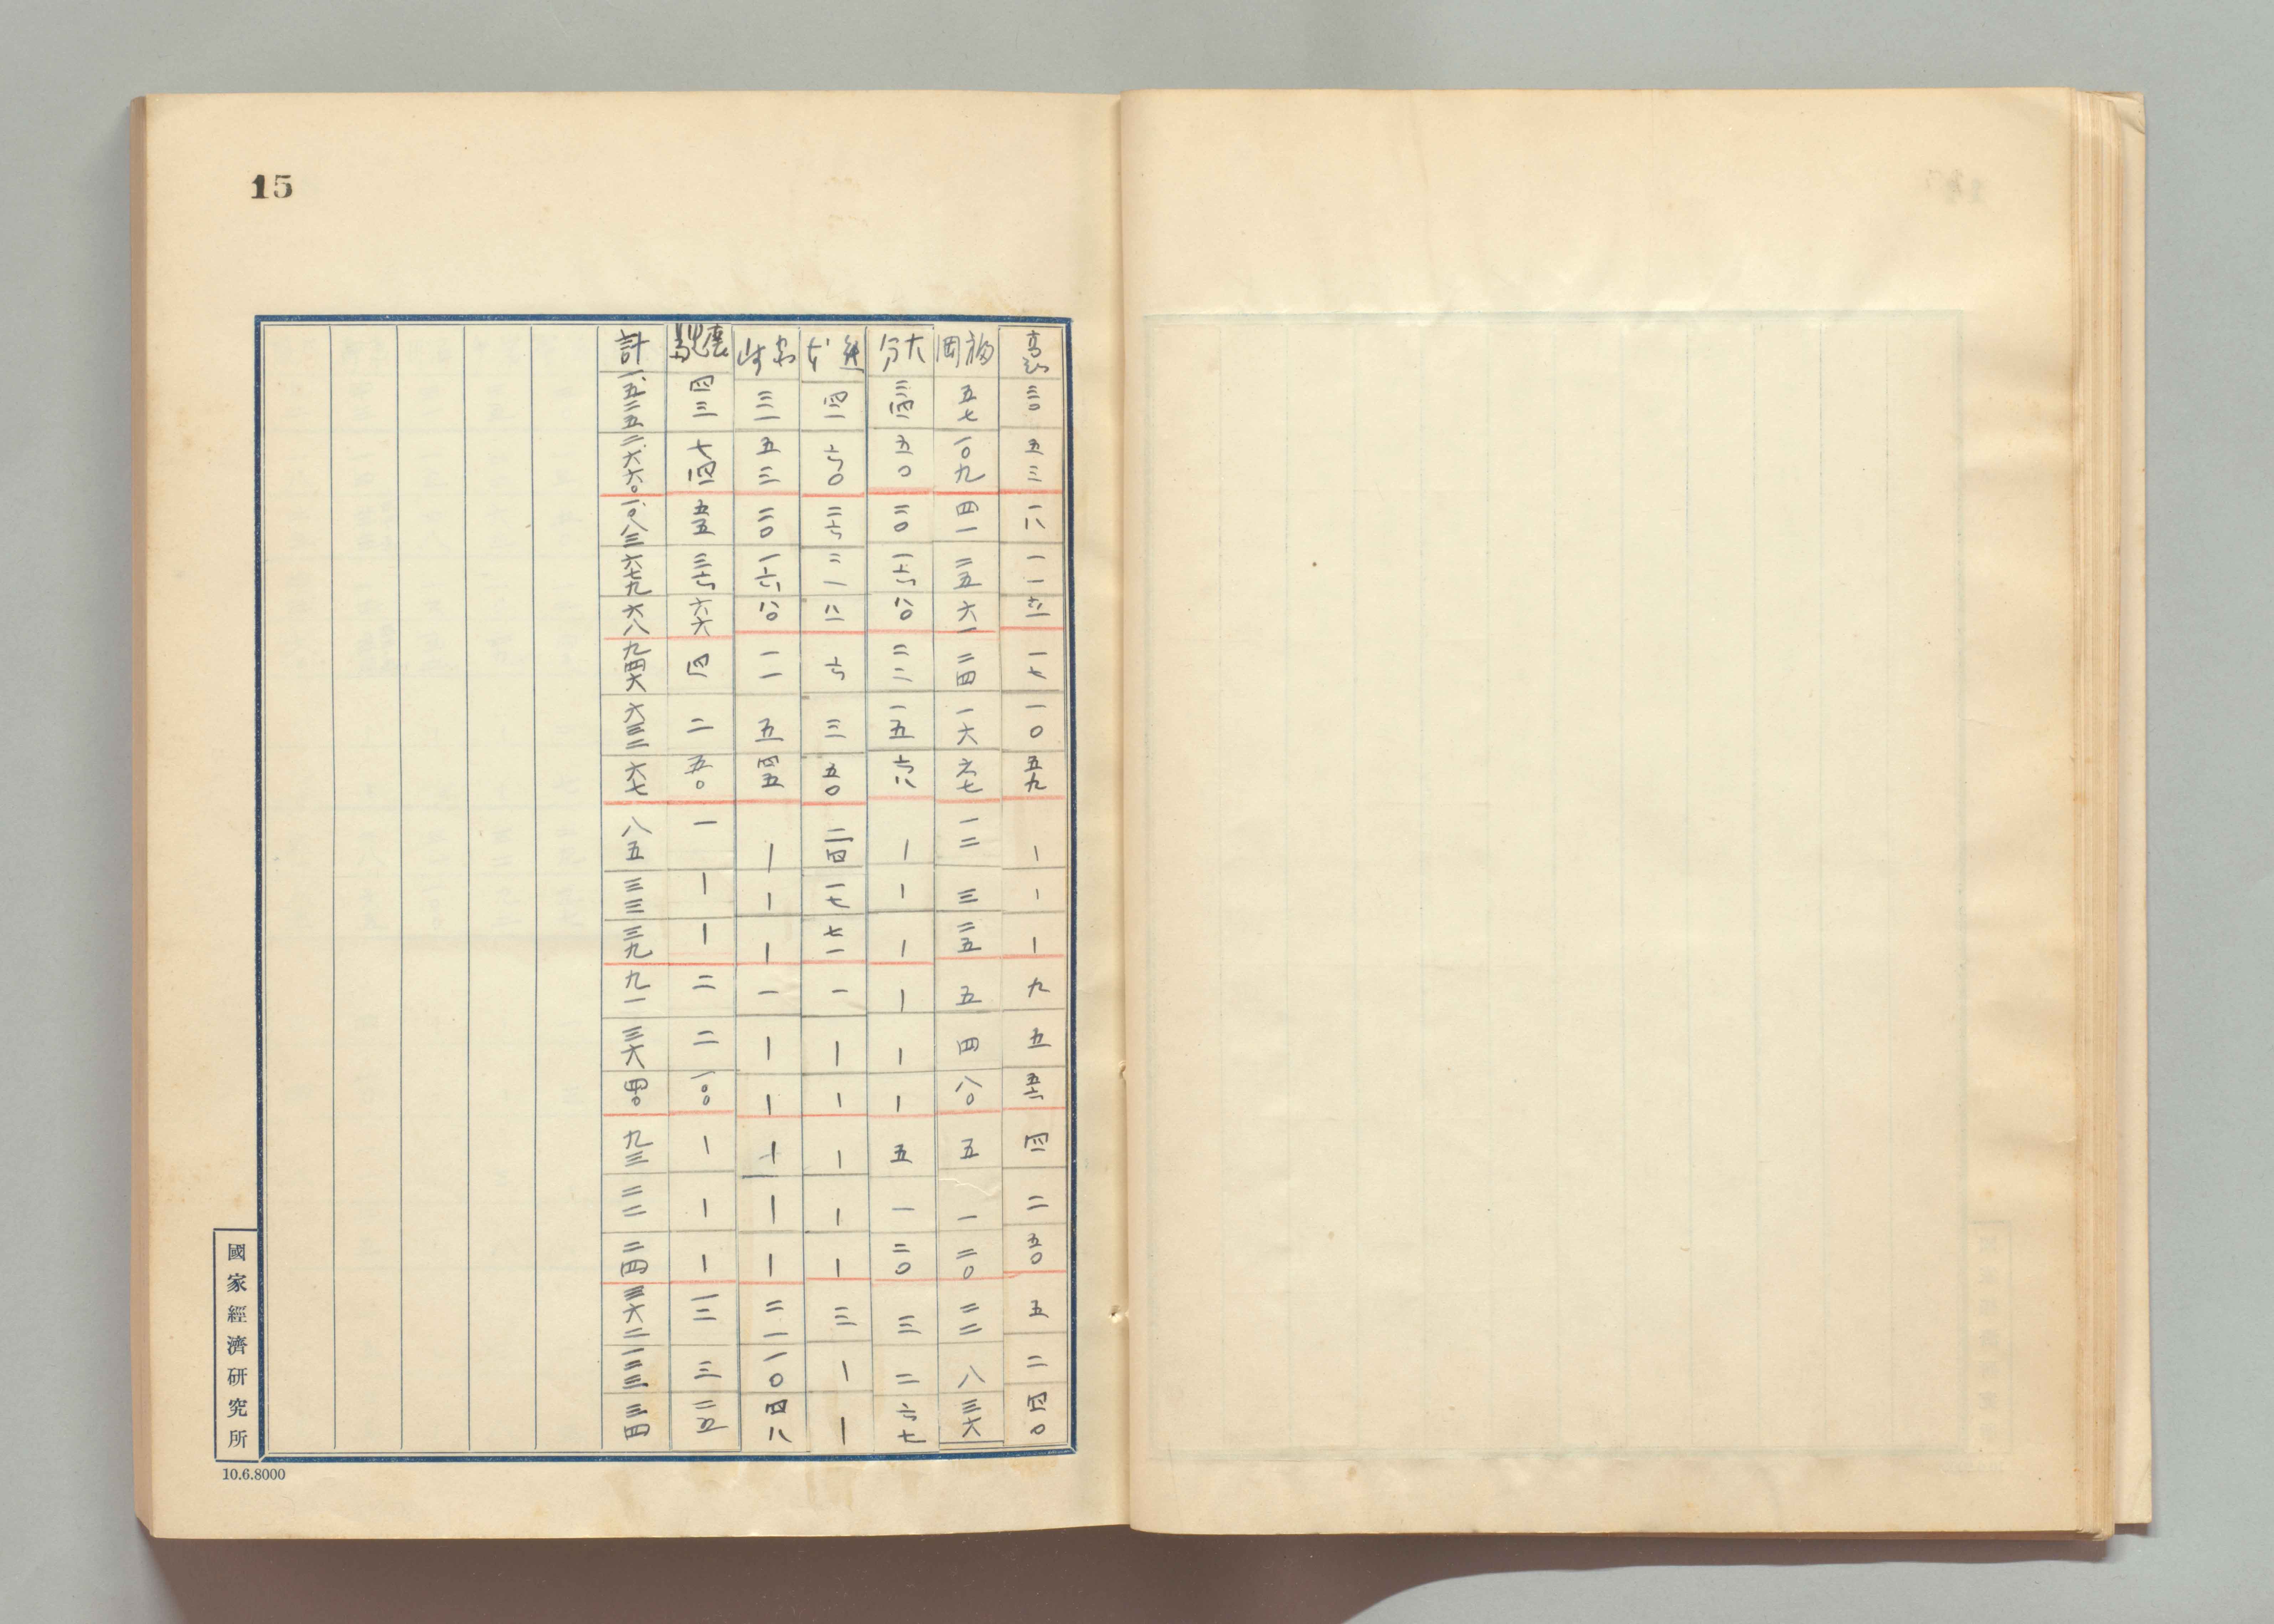 15
高知 三〇 五三 一八 一一 六一 一七 一〇 五九 ー ー ー 九 五 五六 四 二 五〇 五 二 四〇
福岡 五七 一〇九 四一 二五 六一 二四 一六 六七 一二 三 二五 五 四 八〇 五 一 二〇 二二 八 三六
大分 三四 五〇 二〇 一六 八〇 二二 一五 六八 ー ー ー ー ー ー 五 一 二〇 三 二 六七
熊本 四一 六〇 二六 二一 八二 六 三 五〇 二四 一七 七一 一 ー ー ー ー ー 三 ー ー
宮崎 三一 五三 二〇 一六 八〇 一一 五 四五 ー ー ー 一 ー ー ー ー ー 二一 一〇 四八
鹿児島 四三 七四 五五 三六 六六 四 二 五〇 一 ー ー 二 二 一〇〇 ー ー ー 一二 三 二五
計 一、五二五 二、六六〇 一、〇八三 六七九 六八 九四六 六三二 六七 八五 三三 三九 九一 三六 四〇 九三 二二 二四 三六二 一二三 三四
國家經濟研究所
10.6.8000